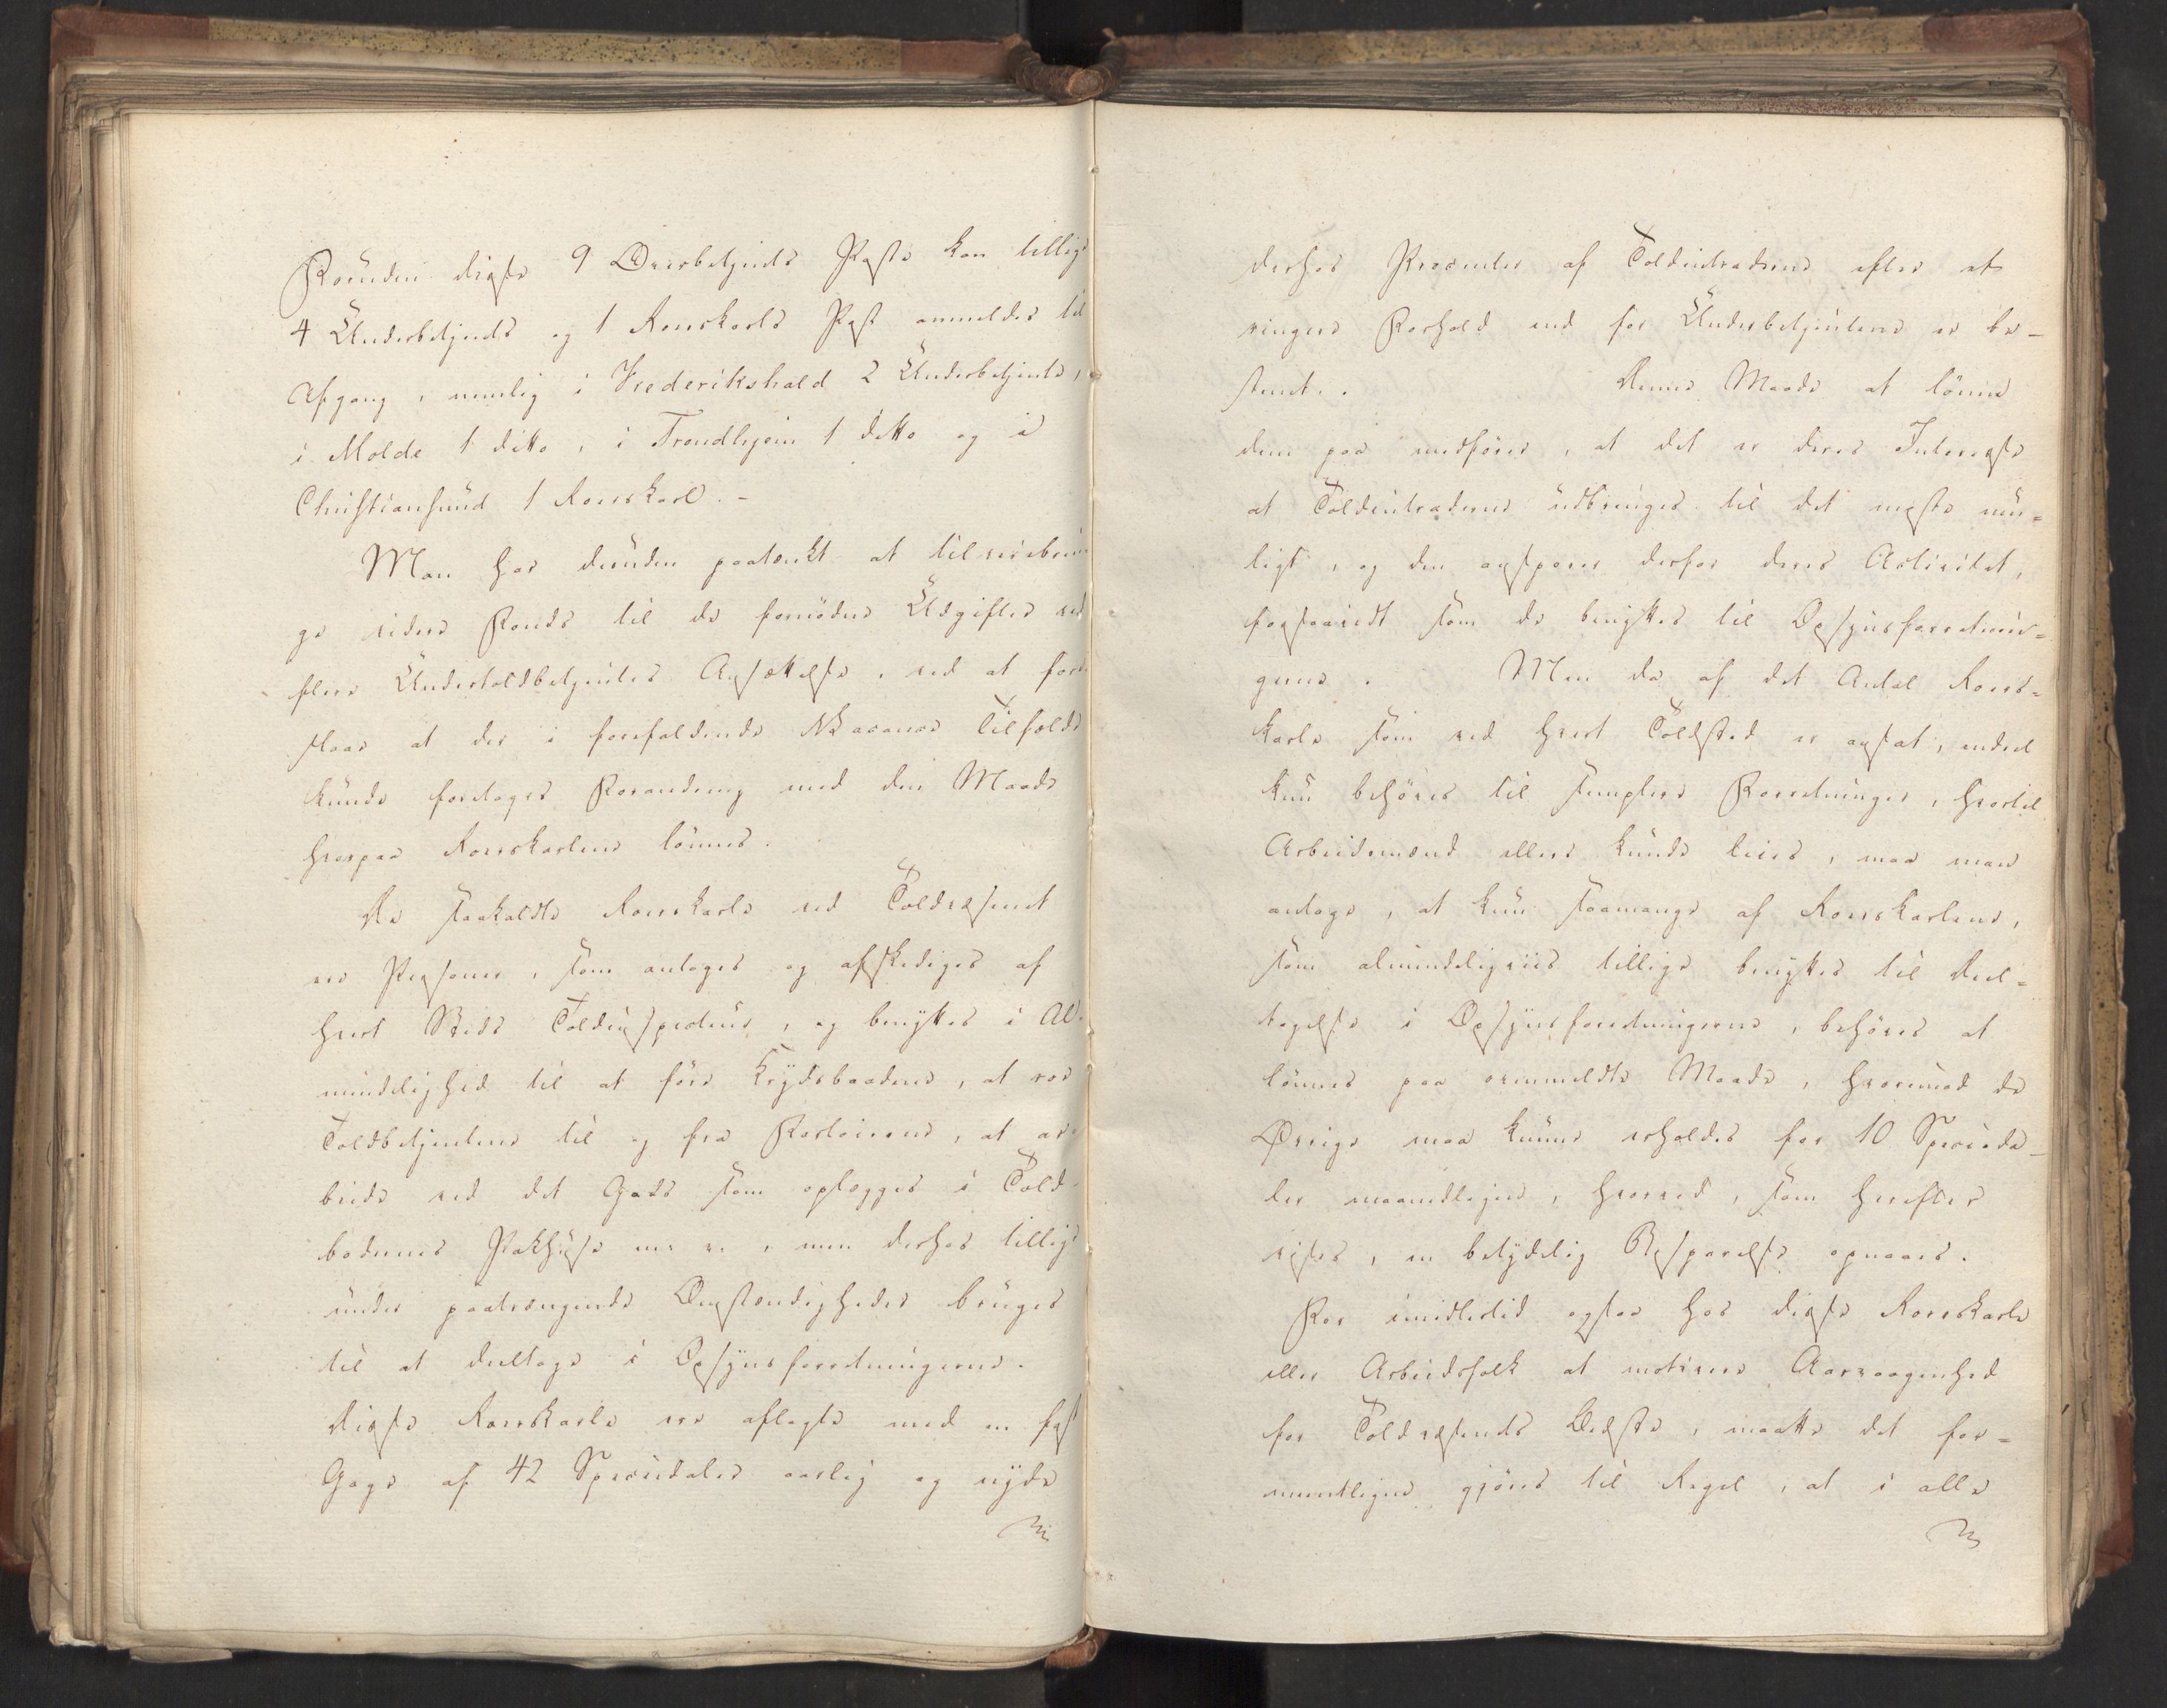 Foruden disse 9 Overbetjents Poste kan tillige
4 Underbetjents og 1 Roerskarls Post anmeldes til
Afgang, nemlig i Frederikshald 2 Underbetjente,
i Molde 1 ditto, i Trondhjem 1 ditto og i
Christiansund 1 Roerskarl. –
Man har desuden paatænkt at tilveiebrin
ge videre Fonds til de fornødne Udgifter ved
flere Undertoldbetjentes Ansættelse, ved at fore
slaae at der i forefaldende Vacance Tilfælde
kunde foretages Forandring med den Maade
hvorpaa Roerskarlene lønnes.
De saakaldte Roerskarle ved Toldvæsenet
ere Personer, som antages og afskediges af
hvert Steds Toldinspecteur, og benyttes i Al-
mindelighed til at føre Krydsbaadene, at roe
Toldbetjentene til og fra Fartøierne, at ar-
beide ved det Gods som oplægges i Told-
bodernes Pakhuse m: v:, men derhos tillige
under paatrængende Omstændigheder bruges
til at deeltage i Opsynsforretningerne.
Disse Roerskarle ere aflagte med en fast
Gage af 42 Speciedaler aarlig og nyde
derhos Procenter af Toldintraderne efter et
ringere Forhold end for Underbetjentene er be-
stemt. Denne Maade at lønne
dem paa medfører, at det er deres Interesse
at Toldintraderne udbringes til det meste mu-
ligt, og den ansporer derfor deres Activitet,
forsaavidt som de benyttes til Opsynsforretnin-
gerne. Men da af det Antal Roers-
karle som ved hvert Toldsted er ansat, endeel
kun behøves til simplere Forretninger, hvortil
Arbeidsmænd ellers kunde leies, maa man
antage, at kun saamange af Roerskarlene,
som almindeligviis tillige benyttes til Deel-
tagelse i Opsynsforretningerne, behøves at
lønnes paa ovenmeldte Maade, hvorimod de
Øvrige maa kunne erholdes for 10 Specieda-
ler maanedligen, hvorved, som herefter
vises, en betydelig Besparelse opnaaes.
For imidlertid ogsaa hos disse Roerskarle
eller Arbeidsfolk at motivere Aarvaagenhed
for Toldvæsenets Bedste, maatte det for-
mentligen gjøres til Regel, at i alle